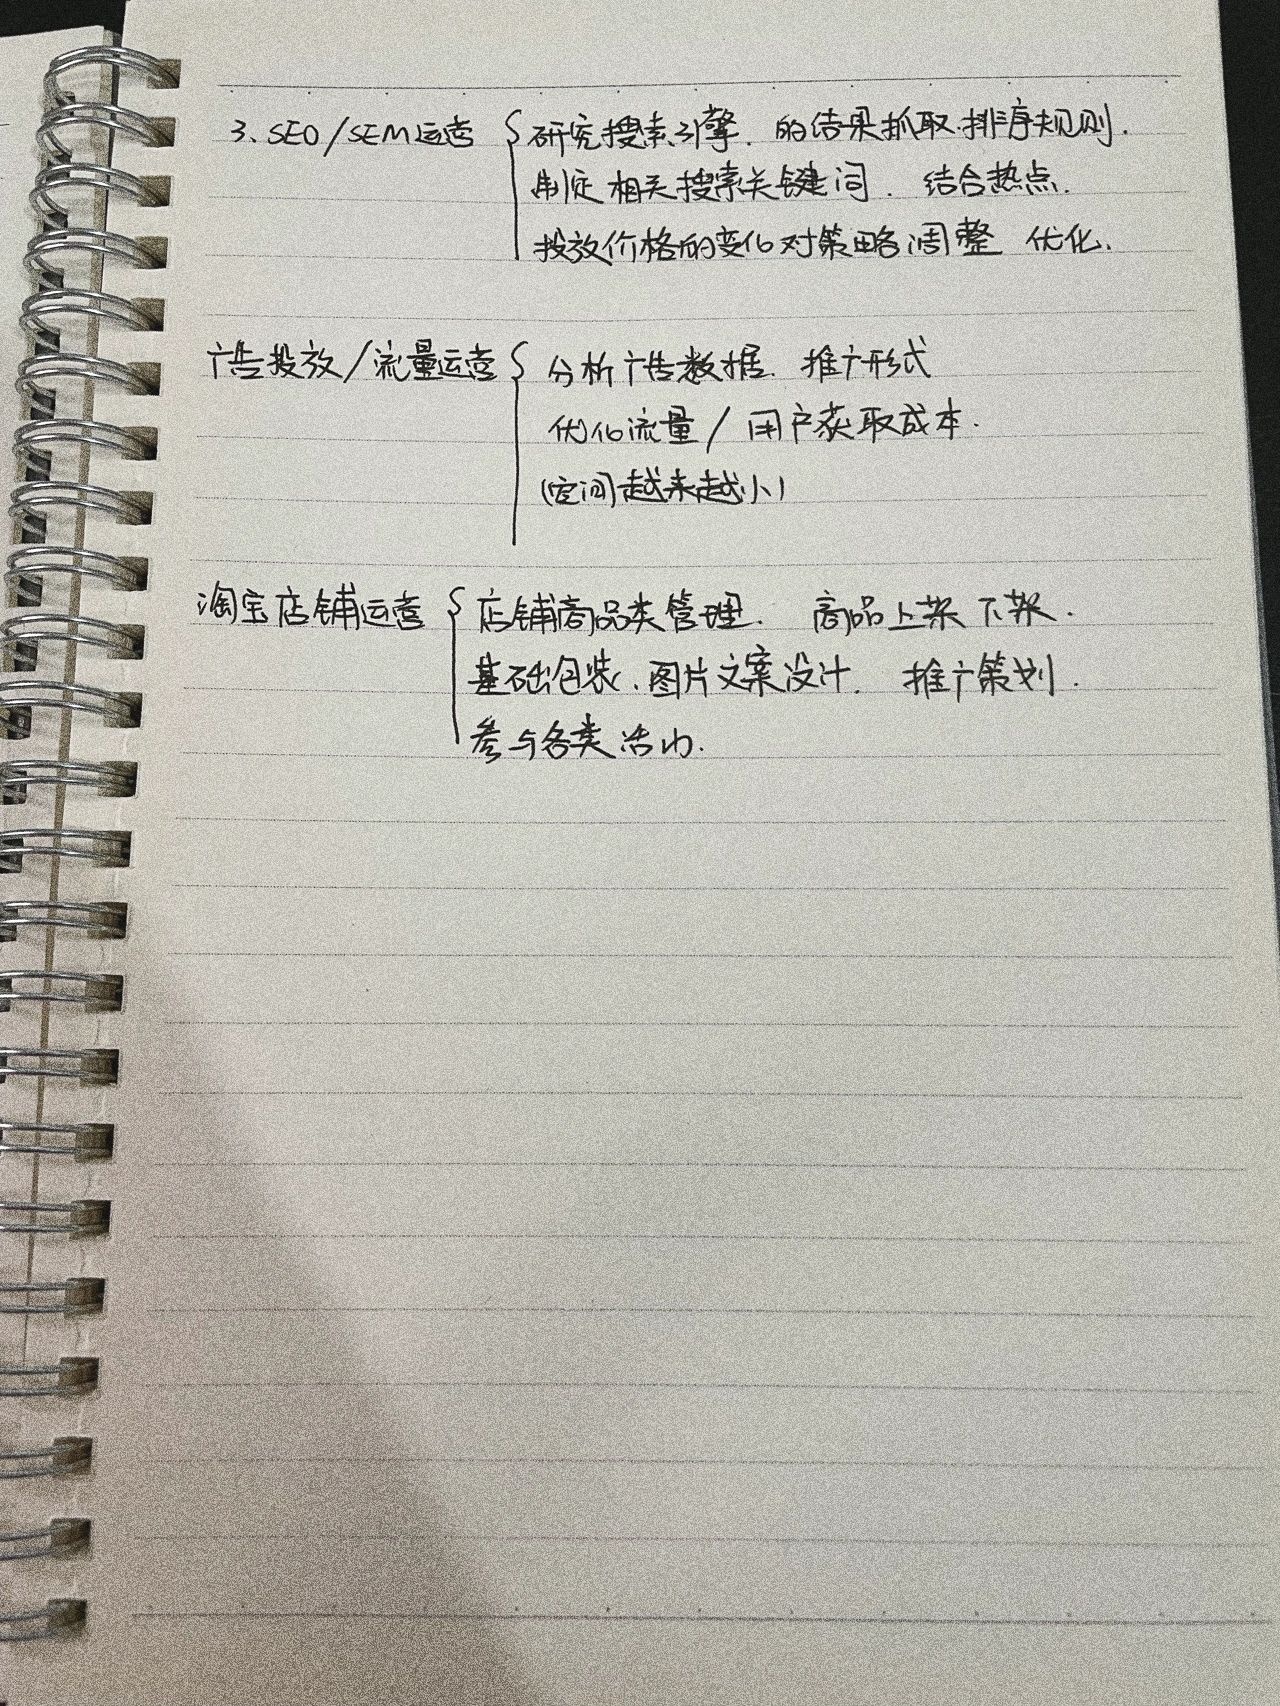 3、SEO/SEM运营 { 研究搜索引擎. 的结果抓取.排序规则.
制定相关搜索关键词. 结合热点.
投放价格的变化对策略调整 优化.
广告投放/流量运营 { 分析广告数据. 推广形式
优化流量/用户获取成本.
(空间越来越小)
淘宝店铺运营 { 店铺商品类管理. 商品上架下架.
基础包装、图片文案设计. 推广策划.
参与各类活动.